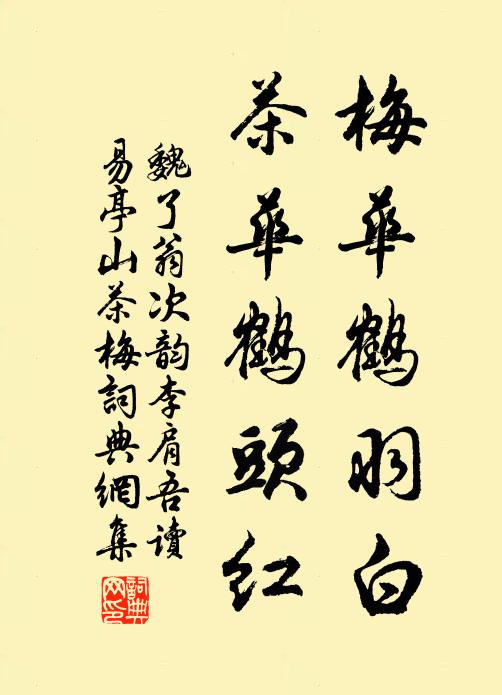 梅華鶴羽白
茶華鶴頭紅
魏了翁次韵李肩吾讀
易亭山茶梅詞典網集
詞典網印